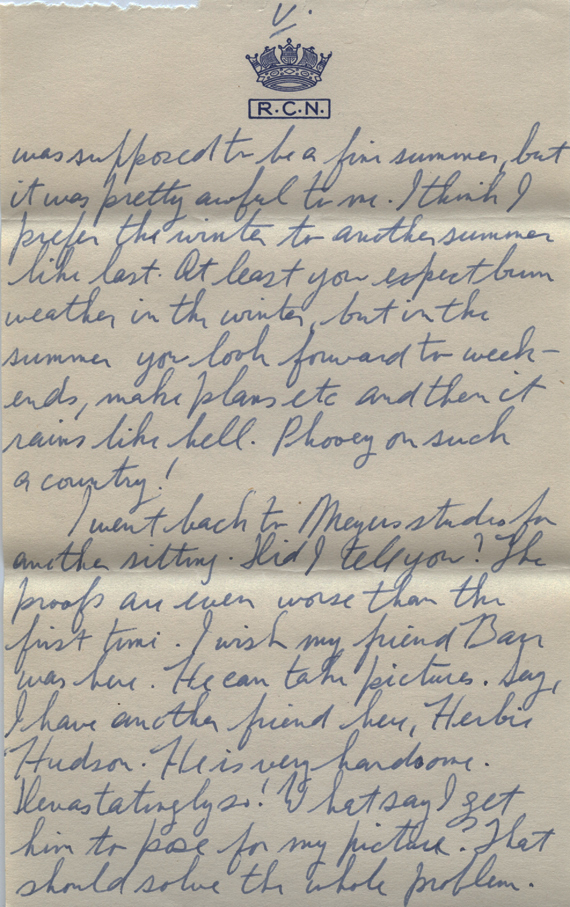 V.
R.C.N.
was supposed to be a fine summer, but
it was pretty awful to me. I think I
prefer the winter to another summer
like last. At least you expect bum
weather in the winter, but in the
summer you look forward to week-
ends, make plans etc and then it
rains like hell. Phooey on such
a country!
I went back to Meyers studios for
another sitting. Did I tell you? The
proofs are even worse than the
first time. I wish my friend Barr
was here. He can take pictures. Say,
I have another friend here, Herbie
Hudson. He is very handsome.
Devastatingly so! What say I get
him to pose for my picture? That
should solve the whole problem.